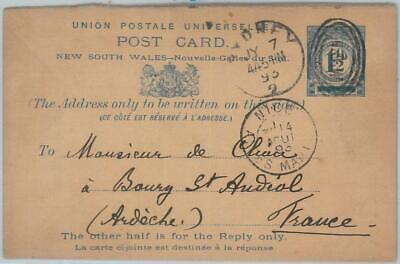 UNION POSTALE UNIVERSELLE
POST CARD.
NEW SOUTH WALES—Nouvelle-Galles du Sud.
SYDNEY
JY 7
93
2
1½
(The Address only to be written on this
(CE CÔTÉ EST RÉSERVÉ À L'ADRESSE.)
NICE
14
AOUT
93
To Monsieur de
à Bourg St Andéol
(Ardèche.) France
The other half is for the Reply only.
La carte ci-jointe est destinée à la réponse